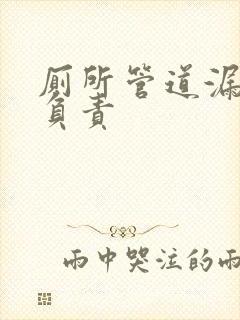 厕所管道漏
负责
雨中哭泣的雨